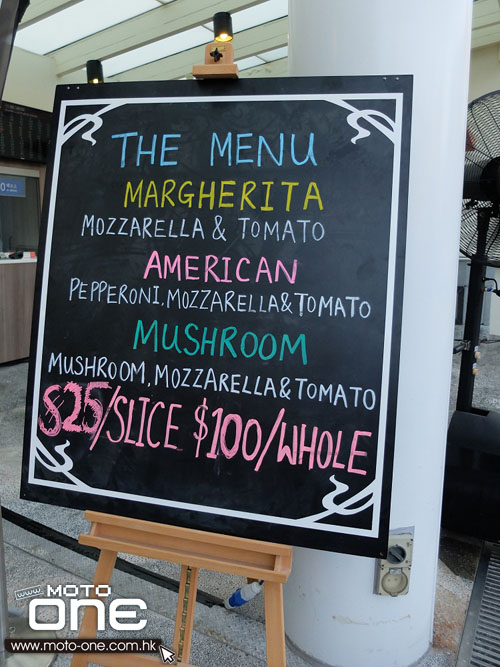 THE MENU
MARGHERITA
MOZZARELLA & TOMATO
AMERICAN
PEPPERONI, MOZZARELLA & TOMATO
MUSHROOM
MUSHROOM, MOZZARELLA & TOMATO
$25/SLICE $100/WHOLE
www. MOTO
ONE
www.moto-one.com.hk